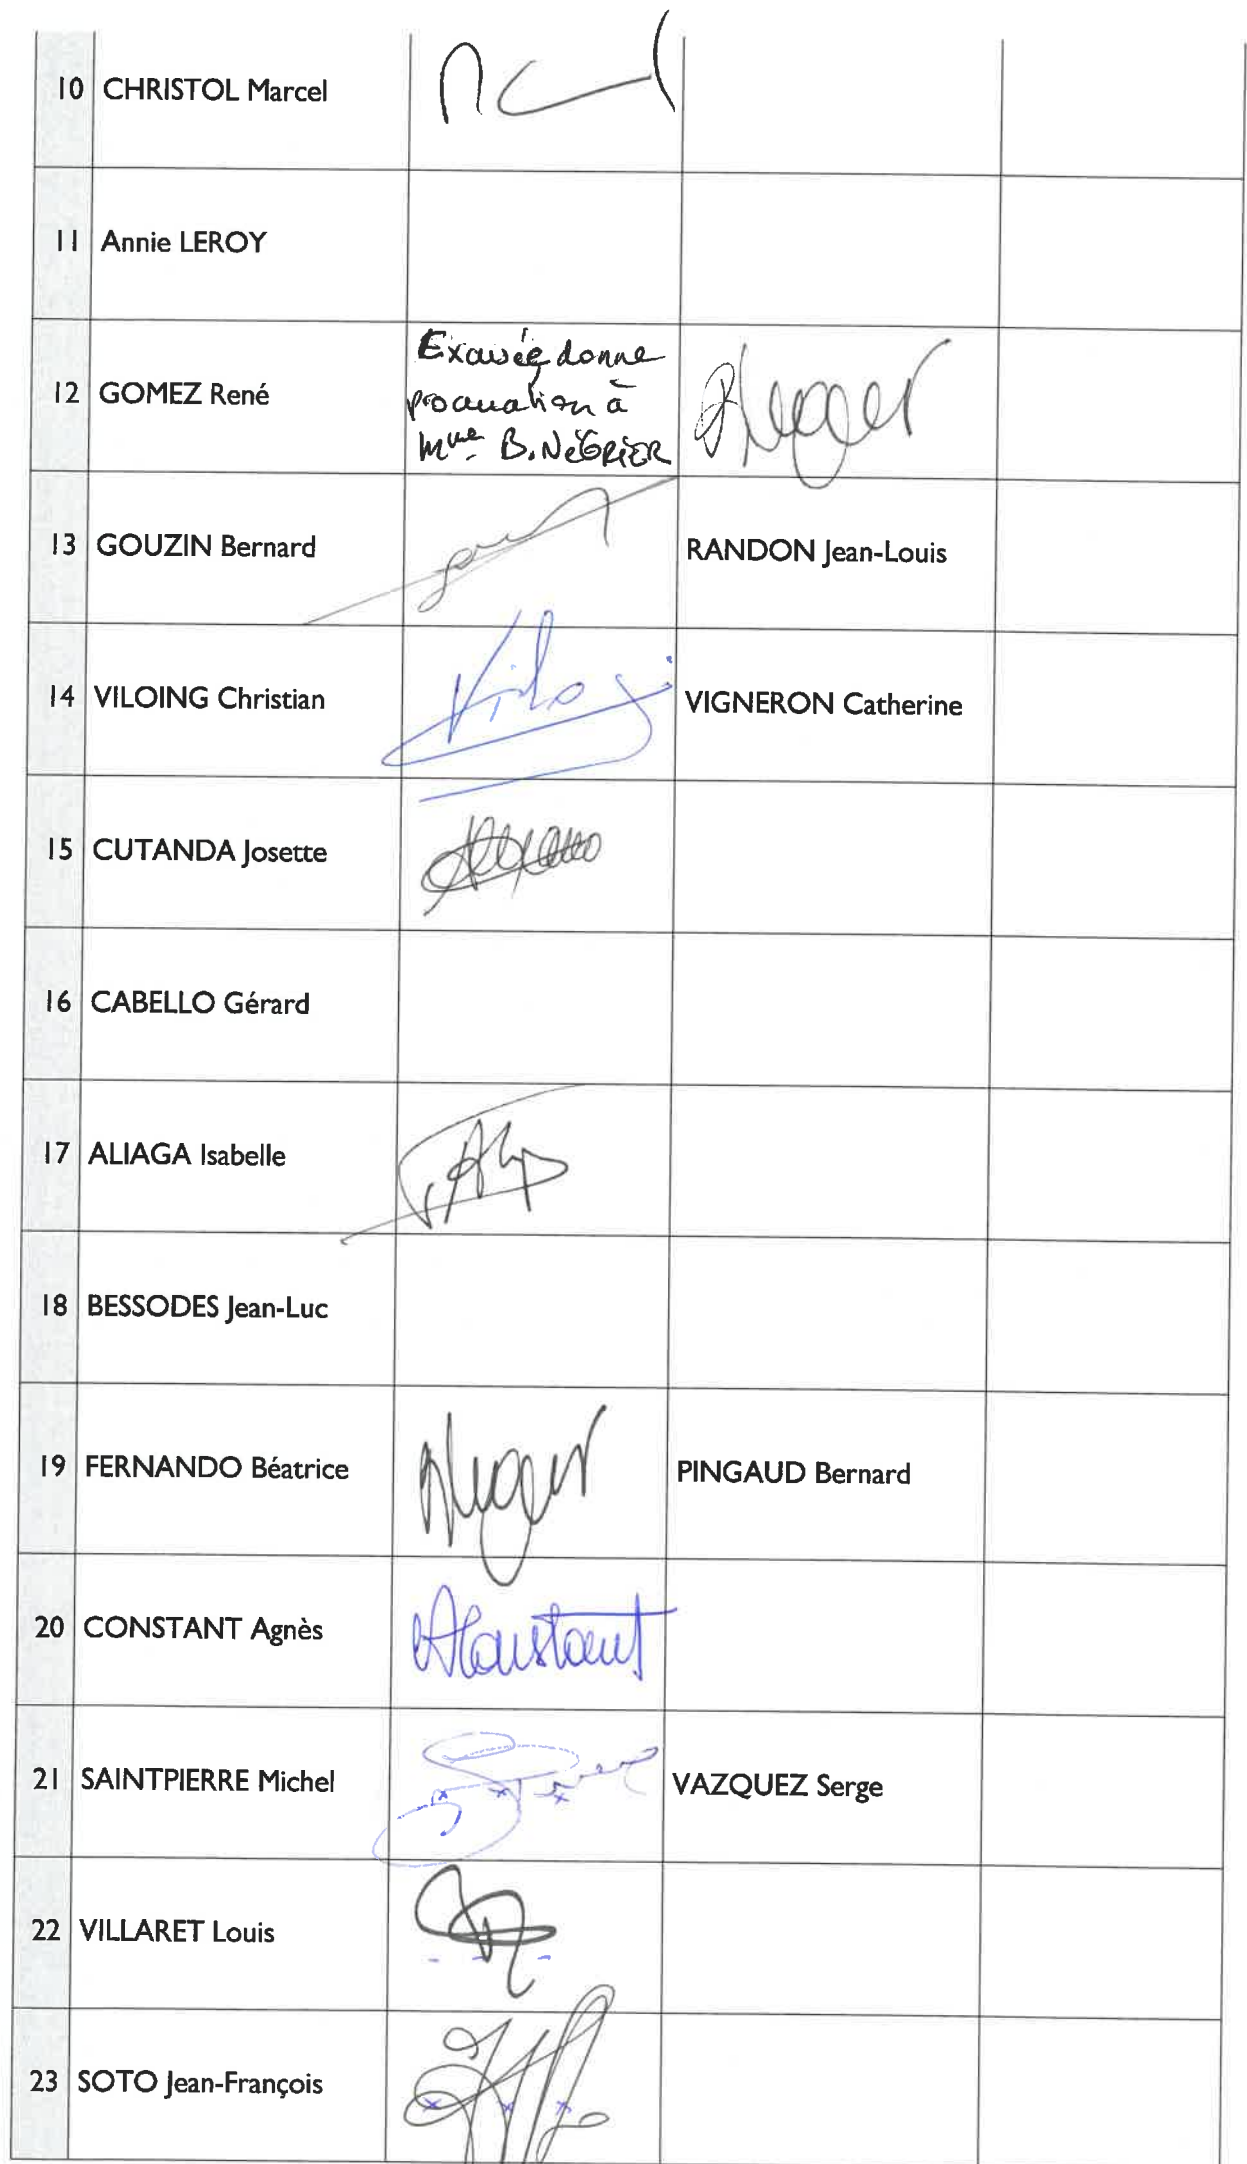 10 CHRISTOL Marcel
11 Annie LEROY
12 GOMEZ René
Exausée donne
procuration à
Mme B. NéGRIER
13 GOUZIN Bernard
RANDON Jean-Louis
14 VILOING Christian
VIGNERON Catherine
15 CUTANDA Josette
16 CABELLO Gérard
17 ALIAGA Isabelle
18 BESSODES Jean-Luc
19 FERNANDO Béatrice
PINGAUD Bernard
20 CONSTANT Agnès
AConstant
21 SAINTPIERRE Michel
VAZQUEZ Serge
22 VILLARET Louis
23 SOTO Jean-François